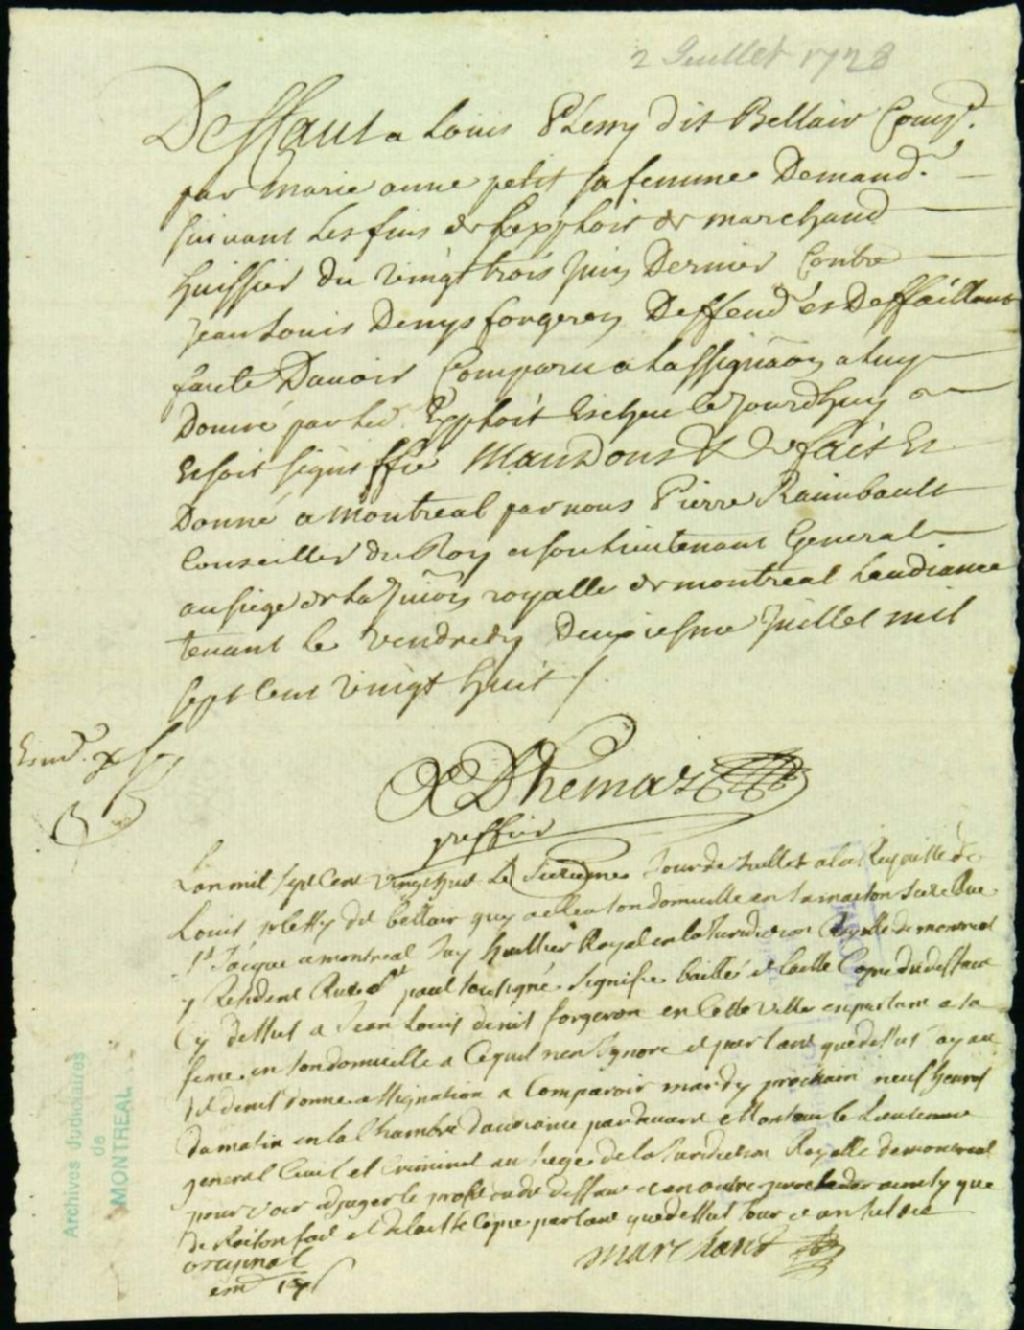 2 Juillet 1728
Deffaut a Louis Plessy dit Bellair Comp.
par Marie anne petit sa femme Demand.
suivant Les fins de Lexploit de marchand
huissier du vingt trois Juin Dernier Contre
Jean Louis Denys forgeron Deffend et Deffaillant
faute Davoir Comparu a Lassignaon a luy
Donné par led. Exploit Escheu ce Jourdhuy
Et soit signiffié Mandons & De fait Et
Donné a Montreal par nous Pierre Raimbault
Conseiller du Roy et son Lieutenant General
au siege de la Juion royalle de montreal Laudiance
tenant le vendredy Deuxiesme Juillet mil
sept Cent vingt huit /
CDhemar
greffier
Lan mil sept Cent vingt huit Le Jour de Juillet a la Requeste de
Louis plessy dit bellair quy a esleu son domicille en sa maison size Rue
St Jacque a montreal Jay huissier Royal en la Jurisdiction Royalle de montreal
y Resident Rue St paul soussigné signifié baillé et laissé Copie du deffaut
Cy dessus a Jean Louis denis forgeron en Cette ville en parlant a sa
feme en son domicille a Ce quil nen Ignore et parlant que dessus Jay au
dit denis donné assignation a Comparoir mardy prochain neuf heures
du matin en la Chambre daudiance pardevant Monsieur le Lieutenant
general Civil et Criminel au siege de la Jurisdiction Royalle de montreal
pour voir adjuger le profit dudit deffaut et en outre proceder ainsy que
de Raison fait et delaissé Copie parlant que dessus Jour et an susdit
original
marchand
Archives Judiciaires
de
MONTREAL